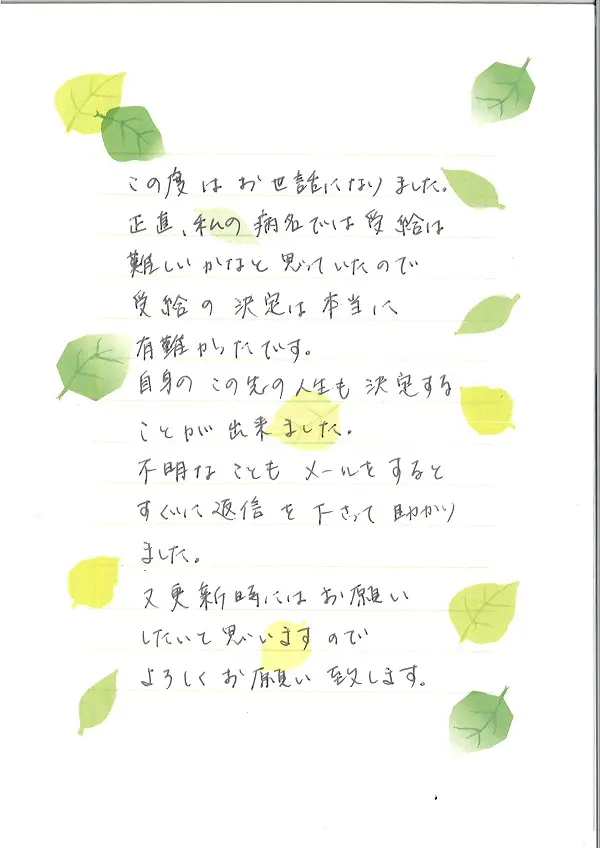 この度は お世話になりました。
正直、私の病名では受給は
難しいかなと思っていたので
受給の決定は本当に
有難かったです。
自身の この先の人生も 決定する
ことが 出来ました。
不明な ことも メールをすると
すぐに返信を下さって助かり
ました。
又更新時には お願い
したいと思いますので
よろしく お願い 致します。